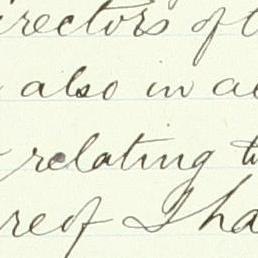 irectors of t
also in ac
relating to
reof I ha